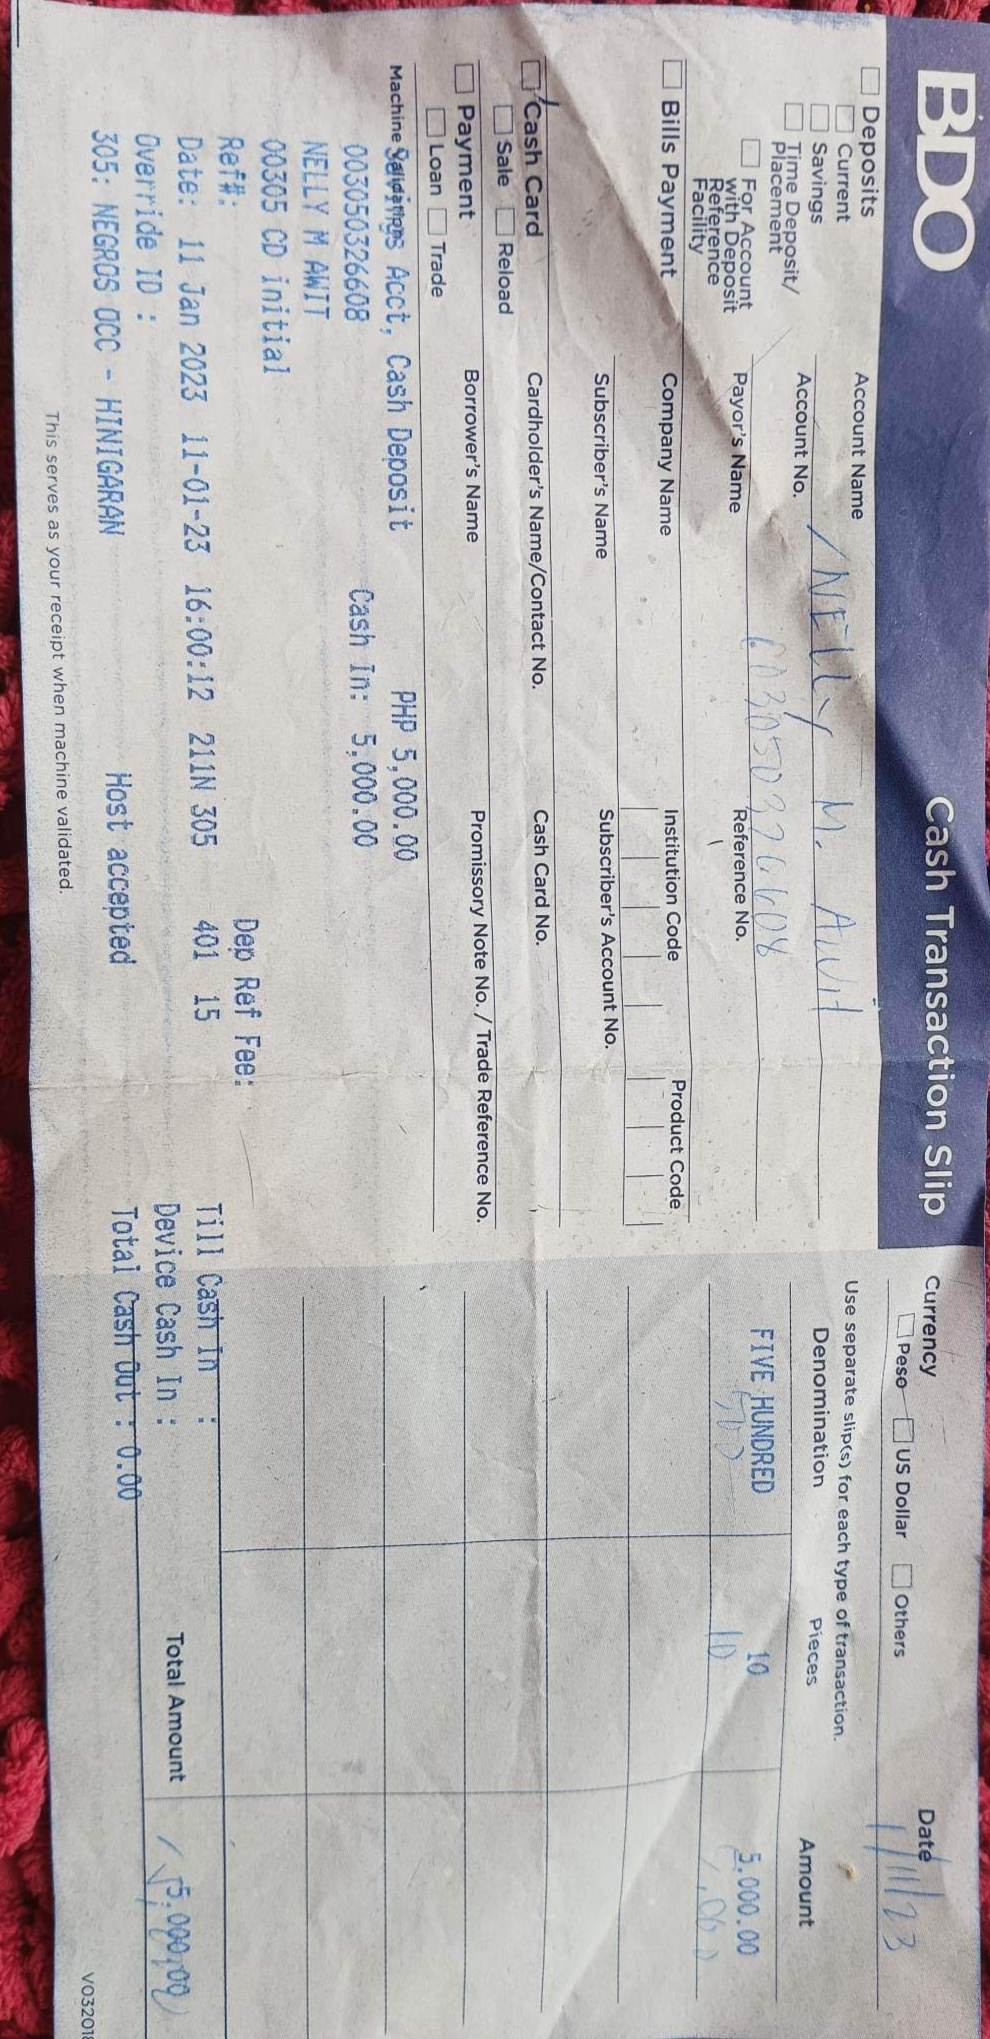 BDO
Cash Transaction Slip
Deposits
Current
Savings
Time Deposit/
Placement
For Account
with Deposit
Reference
Facility
Account Name
NELLY M. Awit
Account No.
003050326608
Payor's Name
Reference No.
Bills Payment
Company Name
Institution Code
Product Code
Subscriber's Name
Subscriber's Account No.
Cash Card
Sale
Reload
Cardholder's Name/Contact No.
Cash Card No.
Payment
Loan
Trade
Borrower's Name
Promissory Note No./ Trade Reference No.
Machine Validation
Savings Acct, Cash Deposit PHP 5,000.00
003050326608 Cash In: 5,000.00
NELLY M AWIT
00305 CD initial
Ref#: Dep Ref Fee:
Date: 11 Jan 2023 11-01-23 16:00:12 211N 305 401 15
Override ID :
305: NEGROS OCC - HINIGARAN Host accepted
This serves as your receipt when machine validated.
Currency
Peso
US Dollar
Others
Date
1/11/23
Use separate slip(s) for each type of transaction.
Denomination Pieces Amount
FIVE HUNDRED 10 5,000.00
500 10
Till Cash In :
Device Cash In :
Total Cash Out : 0.00
Total Amount
5,000.00
V032018